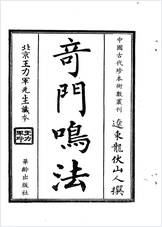 中國古代珍本術數叢刊
遼東龍伏山人撰
奇門鳴法
北京王力軍先生藏本
華齡出版社